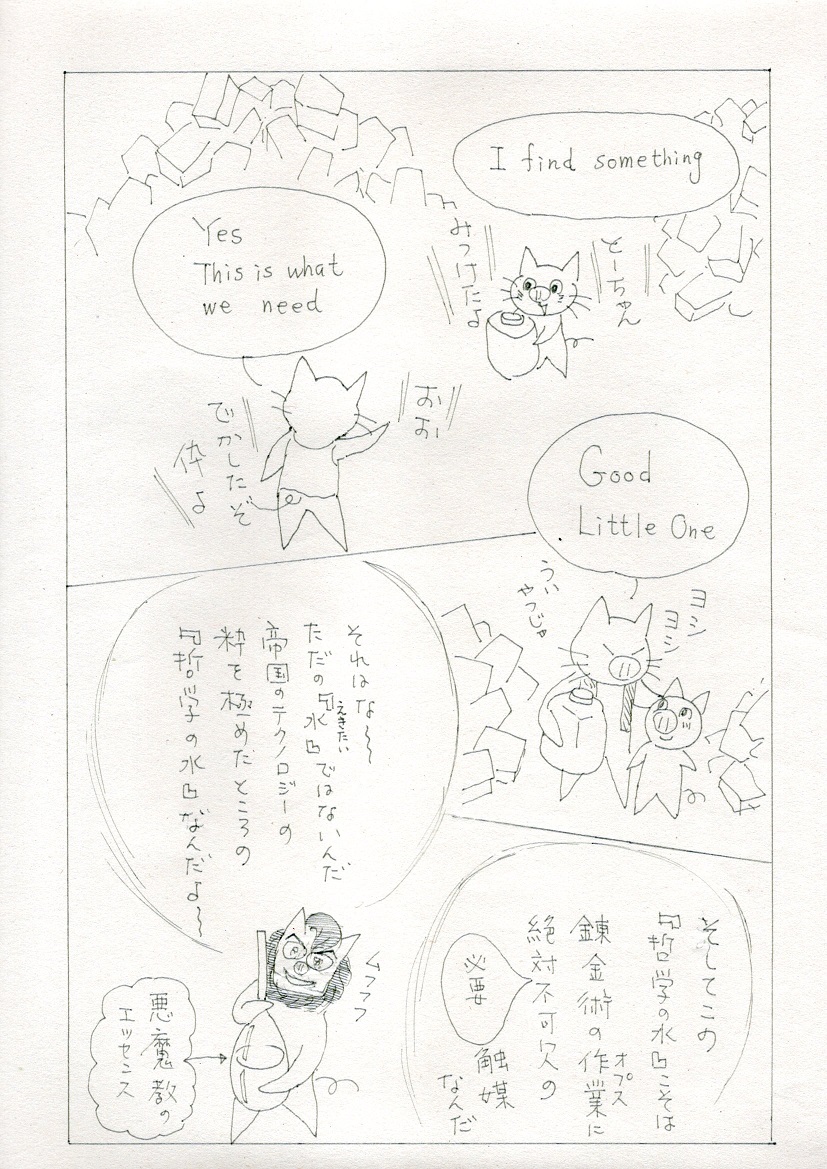 I find something
とーちゃん
みつけたよ
Yes
This is what
we need
おお
でかしたぞ
倅よ
Good
Little One
ヨシ
ヨシ
うい
やつじゃ
それはな〜〜
ただの『水』ではないんだ
えきたい
帝国のテクノロジーの
粋を極めたところの
『哲学の水』なんだよ〜
そしてこの
『哲学の水』こそは
錬金術の作業に
オプス
絶対不可欠の
必要
触媒
なんだ
ムフフフ
悪魔教の
エッセンス